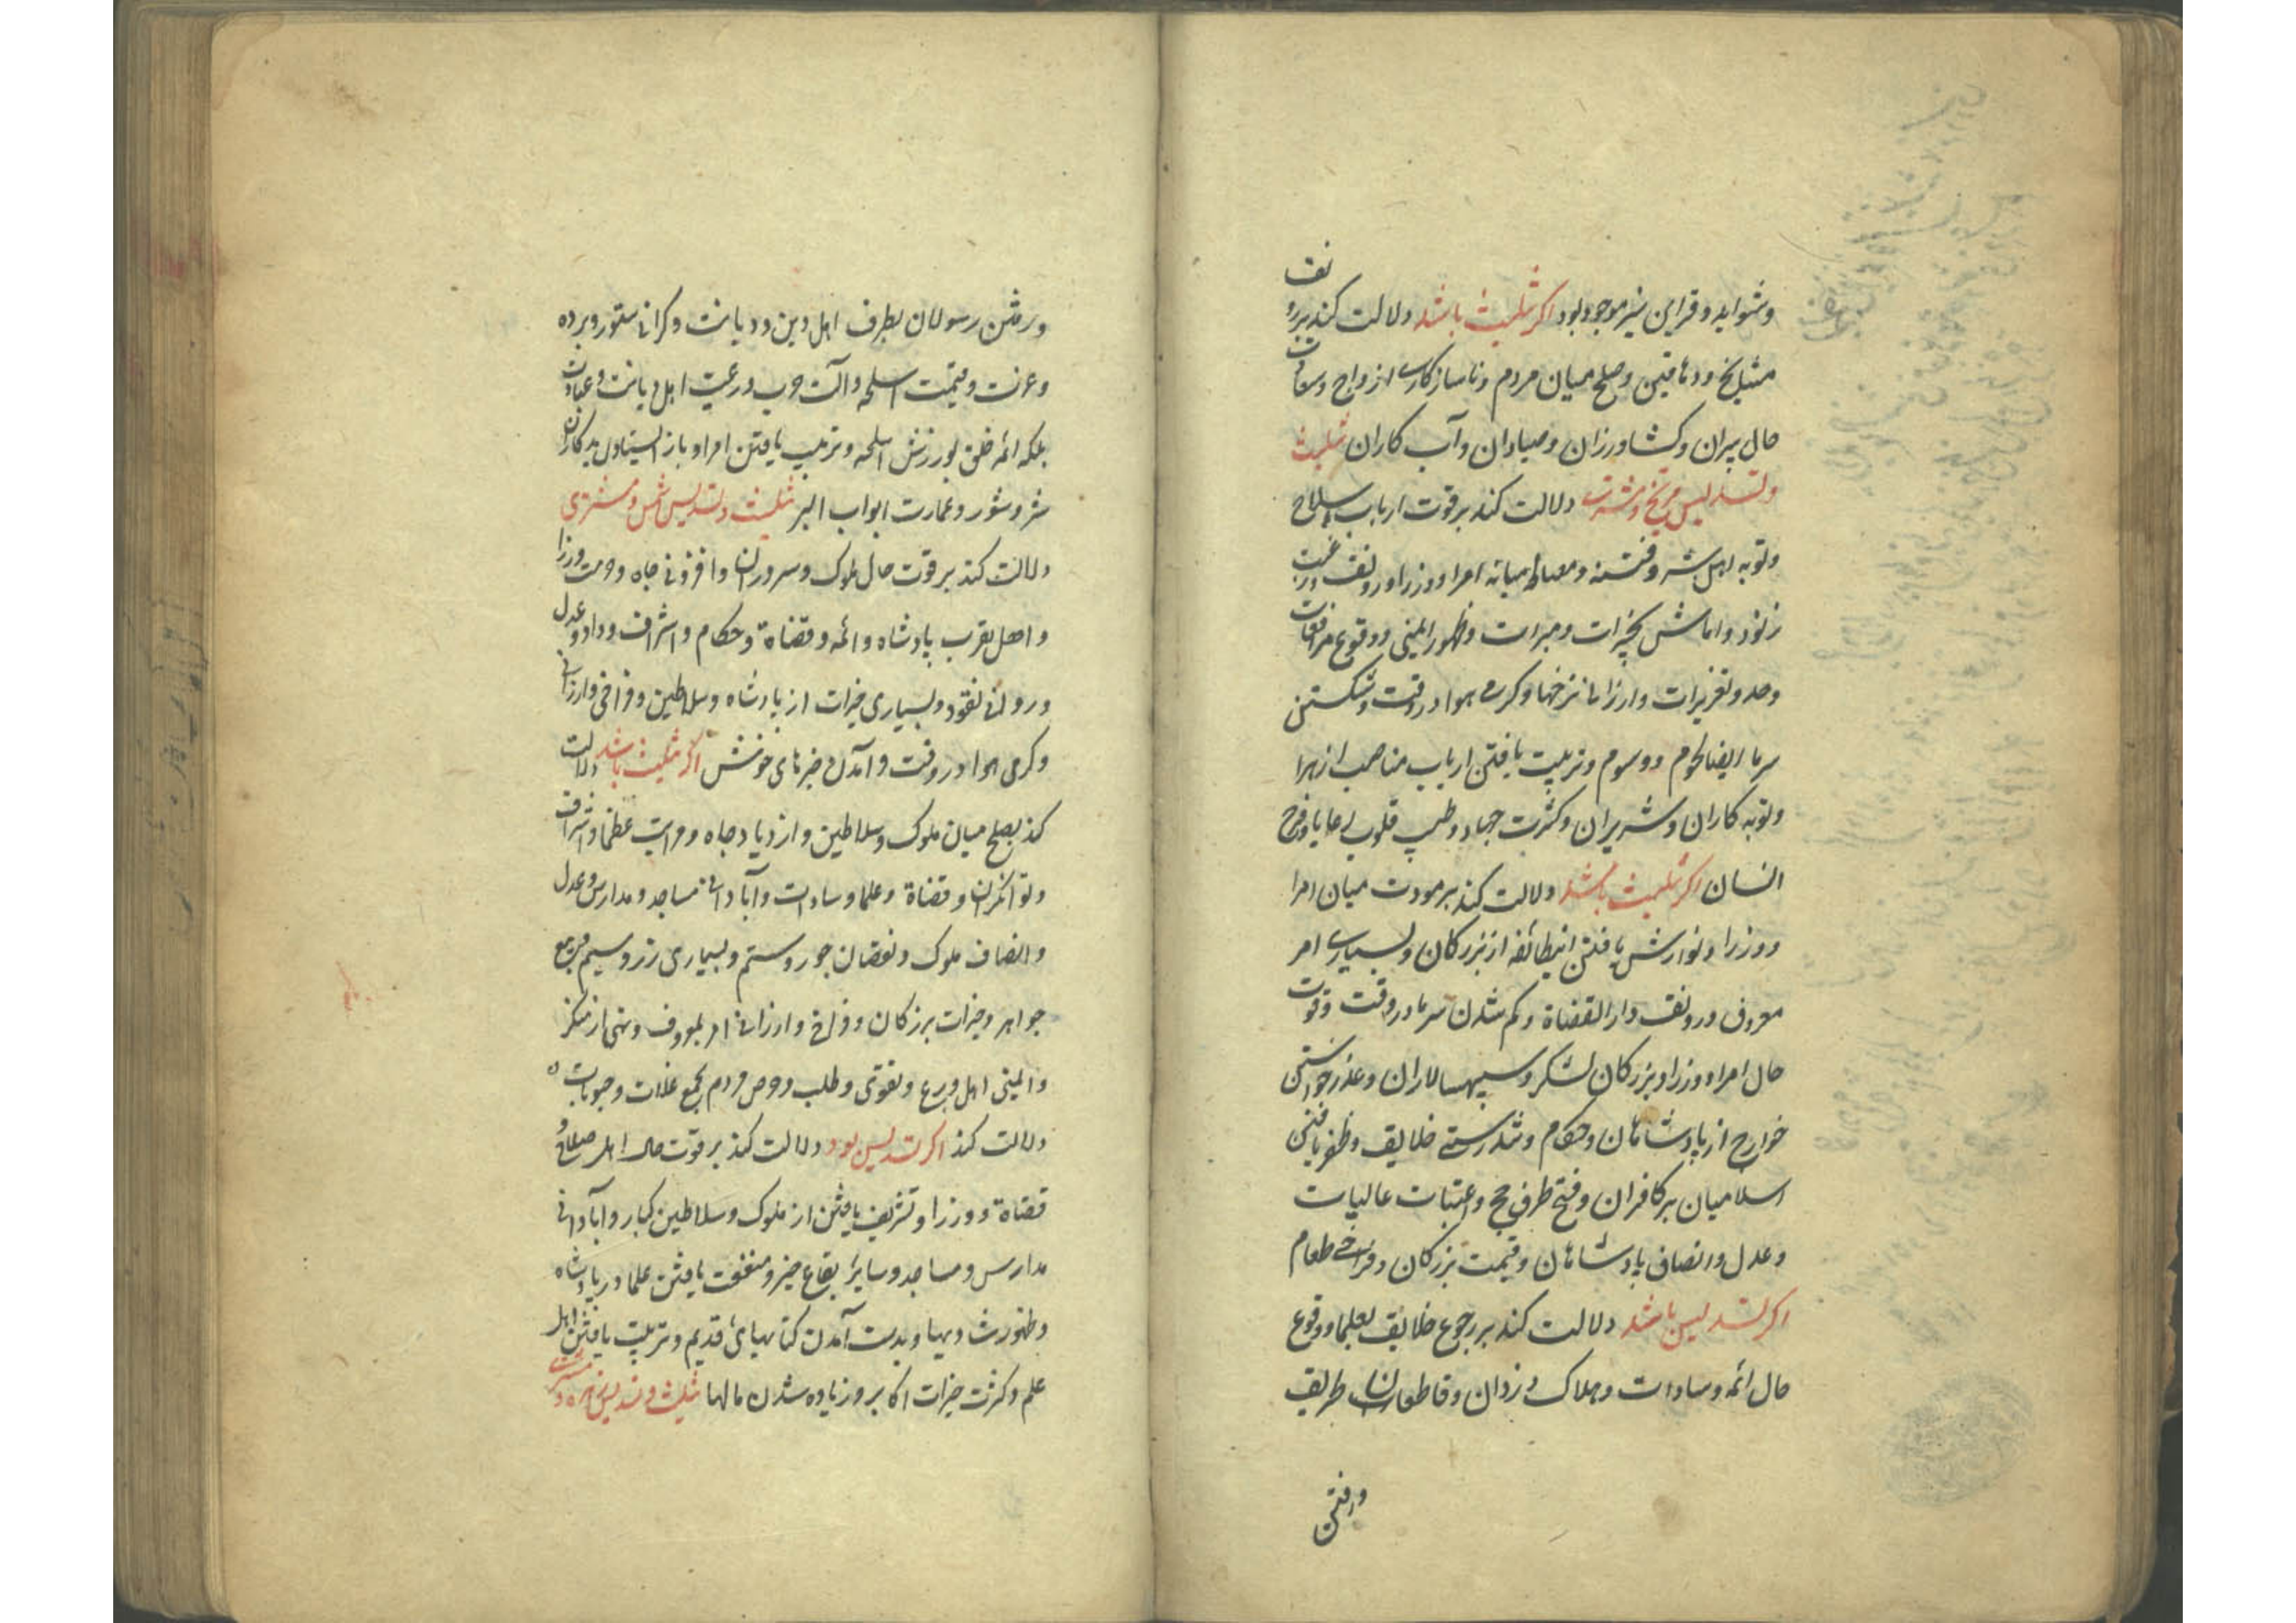 وشواهد و قراین نیز موجود بود اکر تثلیث باشد دلالت کند بر رونف
مشایخ و دهاقین و صلح میان مردم و ناسازکاری ازواج و سعادت
حال پیران و کشاورزان و صیادان و آب کاران تثلیث
و تسدیس مریخ و مشتری دلالت کند بر قوت ارباب سلاح
و توبه اهل شر و فتنه و میانه امرا و وزرا و رونف
و بخیرات و مبرات و ظهور ایمنی و وقوع مرافعات
وحد و تعزیرات و ارزانی نرخها و کرمی هوا در وقت و شکستن
سرما ایضا لحوم و رسوم و تربیت یافتن ارباب مناصب
و توبه کاران و شریران و کثرت جهاد و طیب قلوب رعایا و فرح
انسان اکر تثلیث باشد دلالت کند بر مودت میان امرا
و وزرا و نوازش یافتن اینطائفه از بزرکان و بسیاری امر
معروف و رونق دار القضاة و کم شدن سرما در وقت و قوت
حال امرا و وزرا و بزرکان لشکر و سپهسالاران و عذر خواستن
خوارج از پادشاهان و حکام و تندرستی خلایق و ظفر یافتن
اسلامیان بر کافران و فتح طرف حج و عتبات عالیات
و عدل و انصاف پادشاهان و قیمت بزرکان و فراخی طعام
اکر تسدیس باشد دلالت کند بر رجوع خلایق بعلما و وقوع
حال ائمه و سادات و هلاک دزدان و قاطعان طریق
و رفتن
و رفتن رسولان بطرف اهل دین و دیانت و کرانی ستور و برده
و عزت و قیمت اسلحه و آلت حرب و رغبت اهل دیانت و عبادت
بلکه ائمه خلق بورزش اسلحه و تربیت یافتن امرا و باز ایستادن بدکاران
شر و شور و عمارت ابواب البر تثلیث و تسدیس شمس و مشتری
دلالت کند بر قوت حال ملوک و سروران و افزونی جاه و حرمت وزرا
و اهل بقرب پادشاه و ائمه و قضاة و حکام و اشراف و داد و عدل
و روانی نقود و بسیاری خیرات از پادشاه و سلاطین و فراخی و ارزانی
و کرمی هوا در وقت و آمدن خبرهای خوش اکر تثلیث باشد دلالت
کند بصلح میان ملوک و سلاطین و ازدیاد جاه و مراتب عظما و اشراف
و توانکران و قضاة و علما و سادات و آبادانی مساجد و مدارس و عدل
و انصاف ملوک و نقصان جور و ستم و بسیاری زر و سیم و جمع
جواهر و خیرات بزرکان و فراخی و ارزانی امر بمعروف و نهی از منکر
و ایمنی اهل ورع و تقوی و طلب و حرص مردم بجمع غلات و حبوبات
دلالت کند اکر تسدیس بود دلالت کند بر قوت حال اهل صلاح و
قضاة و وزرا و تشریف یافتن از ملوک و سلاطین کبار و آبادانی
مدارس و مساجد و سایر بقاع خیر و منفعت یافتن علما در پادشاه
و ظهور و بدست آمدن کتابهای قدیم و تربیت یافتن اهل
علم و کثرت خیرات اکابر و زیاده شدن مالها تثلیث و تسدیس زهره و مشتری